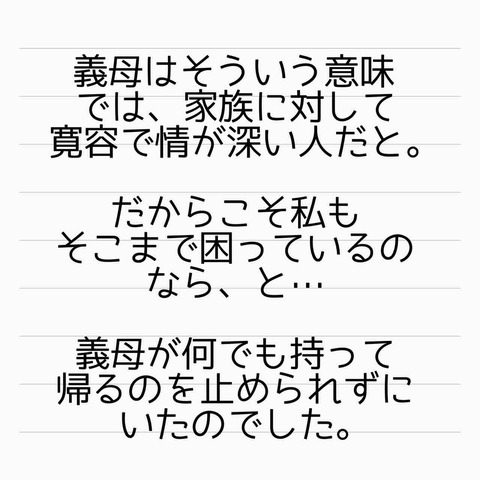 義母はそういう意味
では、家族に対して
寛容で情が深い人だと。
だからこそ私も
そこまで困っているの
なら、と…
義母が何でも持って
帰るのを止められずに
いたのでした。